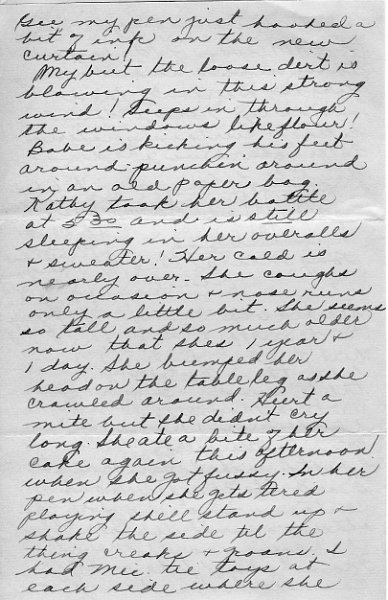 Gee my pen just hooked a
bit of ink on the new
curtain!
My but the loose dirt is
blowing in this strong
wind! Seeps in through
the windows like flour!
Babe is kicking his feet
around punchin around
in an old paper bag.
Kathy took her bottle
at 5 30 and is still
sleeping in her overalls
& sweater! Her cold is
nearly over. She coughs
on occasion & nose runs
only a little bit. She seems
so tall and so much older
now that shes 1 year &
1 day. She bumped her
head on the table leg as she
crawled around. Hurt a
mite but she didnt cry
long. She ate a bite of her
cake again this afternoon
when she got fussy. In her
pen when she gets tired
playing shell stand up &
shake the side til the
thing creaks & groans. I
had Mic. tie toys at
each side where she